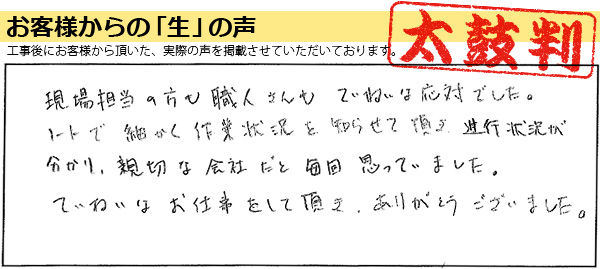 お客様からの「生」の声
太鼓判
工事後にお客様から頂いた、実際の声を掲載させていただいております。
現場担当の方も職人さんもていねいな応対でした。
ノートで細かく作業状況を知らせて頂き、進行状況が
分かり、親切な会社だと毎回思っていました。
ていねいなお仕事をして頂き、ありがとうございました。